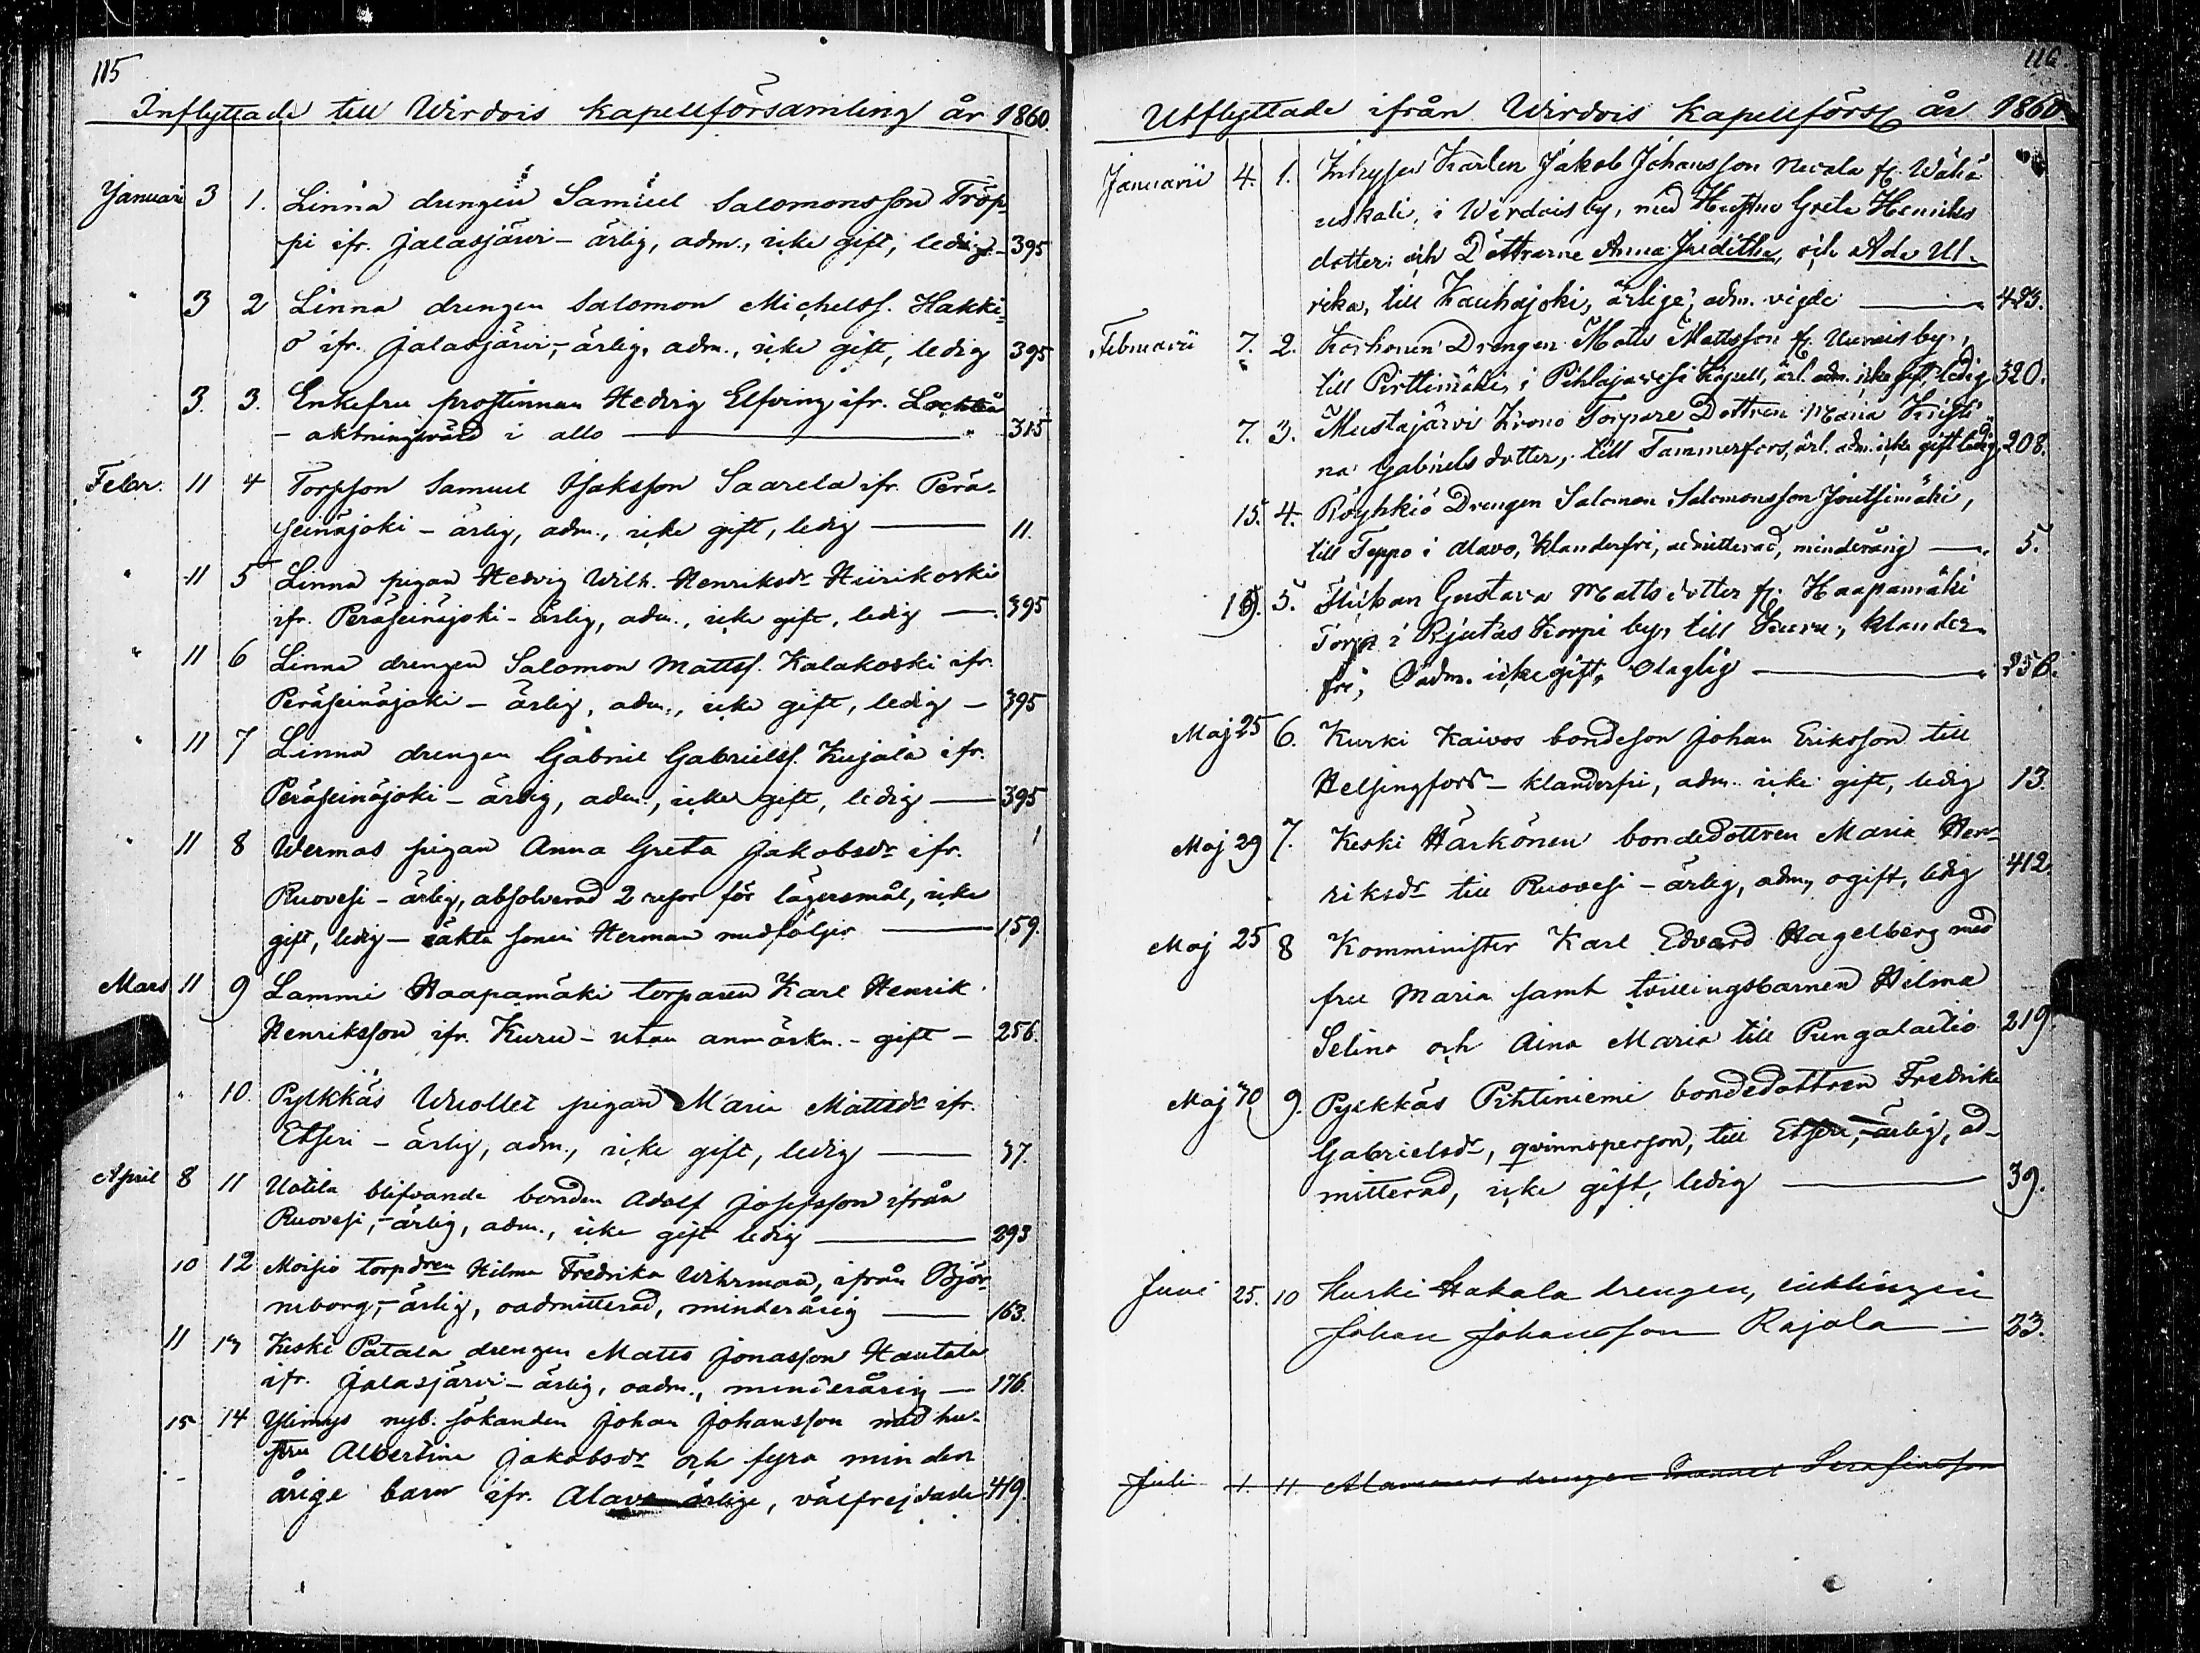 115
Inflyttade till Wirdois kapellförsamling år 1860.
Januari 3 1. Linna drengen Samuel Salomonsson Tröp-
pi ifr. Jalasjärvi - ärlig, adm., icke gift, ledig - 395
" 3 2 Linna drengen Salomon Michelss. Hakki-
ö ifr. Jalasjärvi, - ärlig, adm., icke gift, ledig 395
3. 3. Enkefru prostinnan Hedvig Elfving ifr. Lochteå
- aktningsvärd i allo — " 315
Febr. 11 4 Torpson Samuel Isaksson Saarela ifr. Perä-
seinäjoki - ärlig, adm., icke gift, ledig — 11.
" 11 5 Linna pigan Hedvig Wilh. Henriksdr Hiirikoski
ifr. Peräseinäjoki - ärlig, adm., icke gift, ledig — 395
" 11 6 Linna drengen Salomon Mattss. Kalakoski ifr.
Peräseinäjoki - ärlig, adm., icke gift, ledig - 395
" 11 7 Linna drengen Gabriel Gabrielss. Kujala ifr.
Peräseinäjoki - ärlig, adm., icke gift, ledig — 395
" 11 8 Wermas pigan Anna Greta Jakobsdr ifr.
Ruovesi - ärlig, absolverad 2 resor för lägersmål, icke
gift, ledig - oäkta sonen Herman medföljer — 159.
Mars 11 9 Lammi Haapamäki torparen Karl Henrik
Henriksson ifr. Kuru - utan anmärkn. - gift - 256.
" 10 Pylkkäs Wuollet pigan Maria Mattsdr ifr.
Etseri - ärlig, adm., icke gift, ledig — 37.
April 8 11 Uotila blifvande bonden Adolf Josefsson ifrån
Ruovesi, - ärlig, adm., icke gift ledig — 293
10 12 Moisio torpdren Hilma Fredrika Wihrman, ifrån Björ-
neborg, - ärlig, oadmitterad, minderårig — 163.
11 13 Keski Patala drengen Matts Jonasson Hautala
ifr. Jalasjärvi - ärlig, oadm., minderårig — 176.
15 14 Ylimys nyb. sökanden Johan Johansson med hu-
stru Albertina Jakobsdr och fyra minder
årige barn ifr. Alavo ärlige, välfrejdade 419.
116.
Utflyttade ifrån Wirdois kapellförs. år 1860.
Januarii 4. 1. Karlen Jakob Johansson
i Wirdois by, med Hustru Greta Henriks
dotter och Döttrarne Anna Juditha, och Ada Ul-
rika, till Kauhajoki, ärlige, adm. vigde — 423.
Februarii 7. 2. Korhonen Drengen Matts Mattsson
till Perttimäki, i Pihlajavesi Kapell, ärl. adm. icke gift, ledig 320.
7. 3. Mustajärvi Krono Torpare Dottren Maria Kristi
na Gabriels dotter, till Tammerfors, ärl. adm. icke gift ledig 208.
15. 4. Röyhkiö Drengen Salomon Salomonsson Joutsimäki,
till Teppo i Alavo, klanderfri, admitterad, minderårig — 5.
19. 5. Flickan Gustava Matts dotter fr. Haapamäki
Torp i Rjutas Korpi by, till Kuru, klander-
fri, Oadm. icke gift, Olaglig — 256.
Maj 25 6. Kurki Kaivos bondeson Johan Eriksson till
Helsingfors - klanderfri, adm. icke gift, ledig 13.
Maj 29 7. Keski Härkönen bondedottren Maria Hen-
riksdr till Ruovesi - ärlig, adm., ogift, ledig 412.
Maj 25 8 Komminister Karl Edvard Hagelberg med
fru Maria samt tvillingsbarnen Hilma
Selina och Aina Maria till Pungalaitio 219.
Maj 30 9. Pylkkäs Pihtiniemi bondedottren Fredrika
Gabrielsdr, qvinnsperson, till Etseri, - ärlig, ad-
mitterad, icke gift, ledig — 39.
Juni 25. 10 Kurki Hakala drengen, enklingen
Johan Johansson Rajala — 23.
Juli 1. 11. drengen Serafinsson